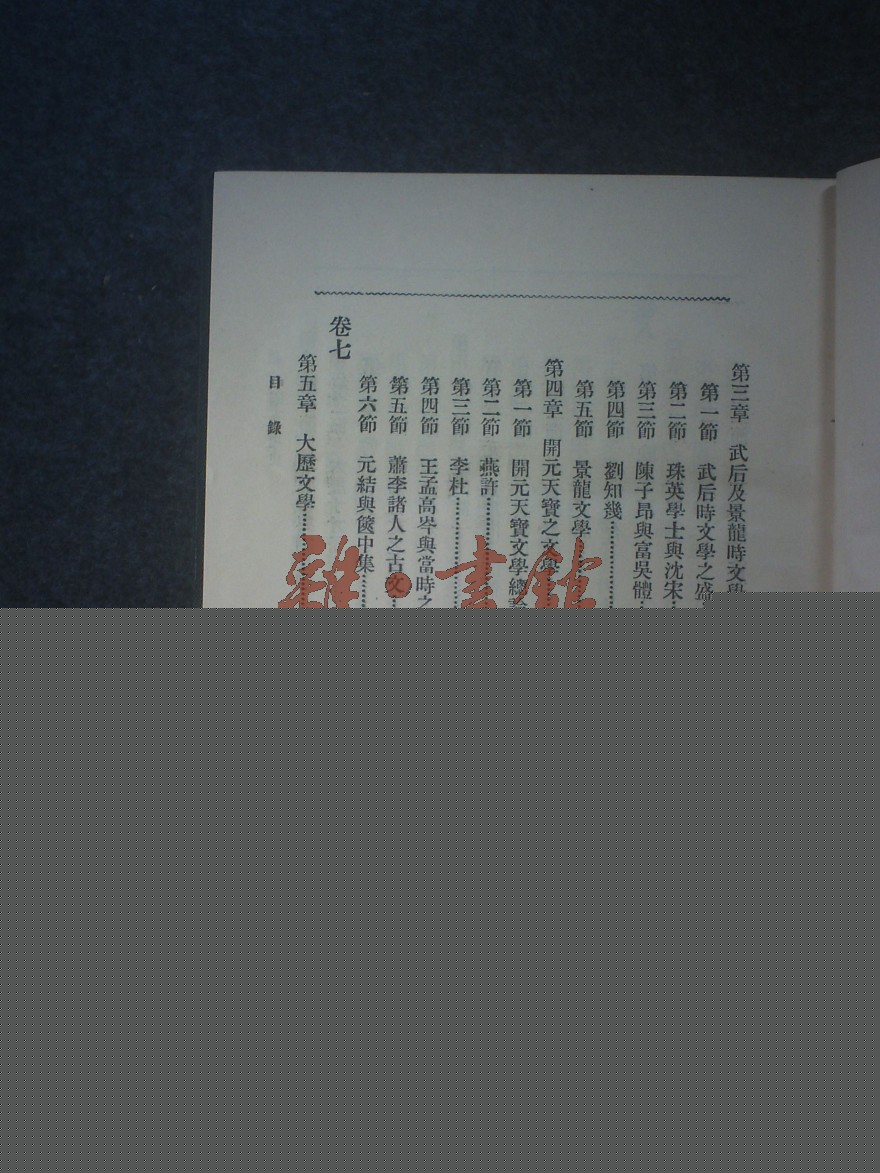 第三章 武后及景龍時文學
第一節 武后時文學之盛
第二節 珠英學士與沈宋
第三節 陳子昂與富吳體
第四節 劉知幾
第五節 景龍文學
第四章 開元天寶之文學
第一節 開元天寶文學總論
第二節 燕許
第三節 李杜
第四節 王孟高岑與當時之
第五節 蕭李諸人之古文
第六節 元結與篋中集
卷七
第五章 大歷文學
目錄
雜·書館